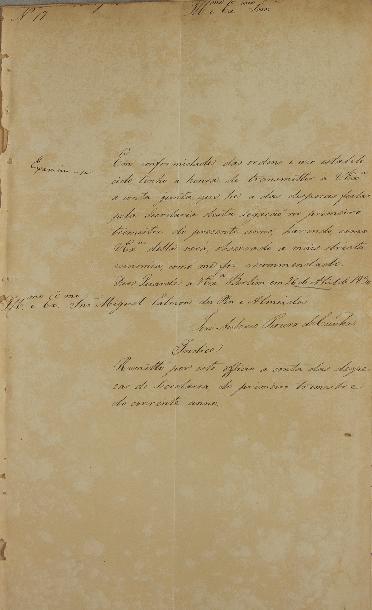 Nº 17
Illmo e Exmo Snr
Examine-se
Em conformidade das ordens e uso estabele
cido tenho a honra de transmittir a VExª
a conta junta que he a das despezas feitas
pela Secretaria desta Legação no primeiro
trimestre do presente anno, havendo como
VExª della verá, observado a mais stricta
economia, como me foi recommendado.
Deos Guarde a VExª Berlim em 26 de Abril de 18
Illmo e Exmo Snr Miguel Calmon du Pin e Almeida
Antonio
Indice
Remetto por este officio a conta das despe
zas de Secretaria do primeiro trimestre
do corrente anno.